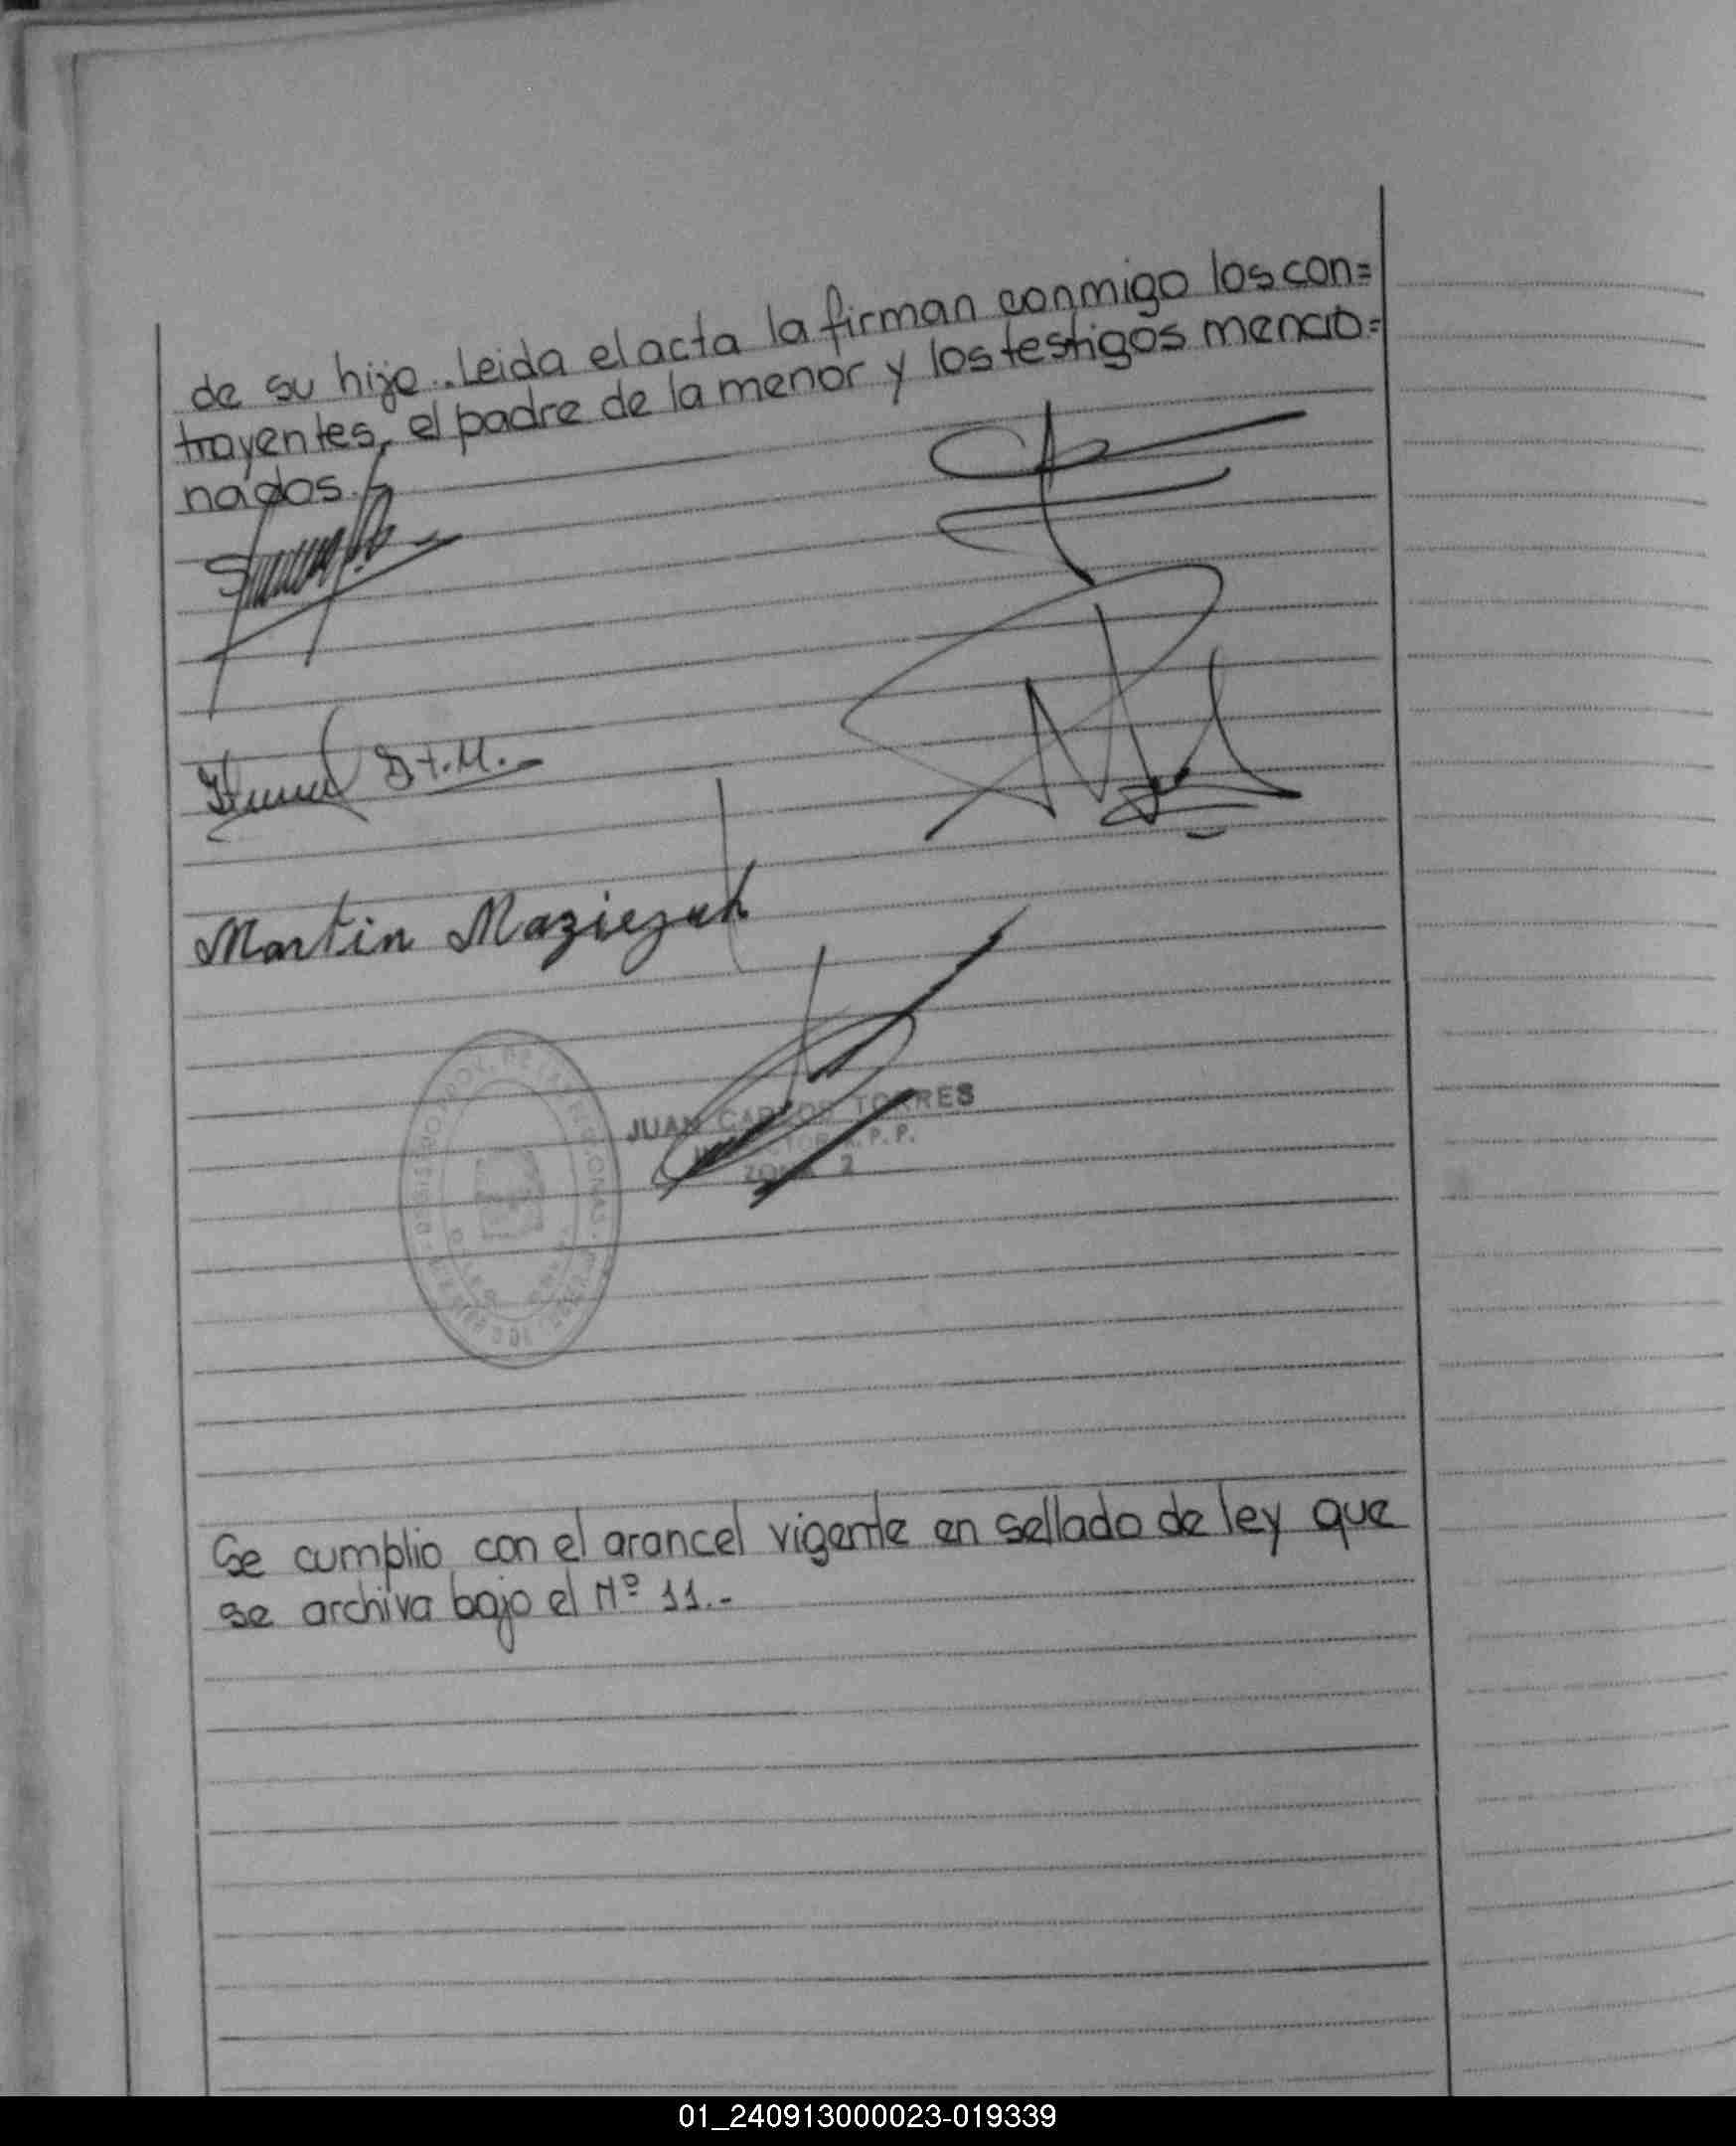 de su hijo.. Leida el acta la firman conmigo los con=
trayentes, el padre de la menor y los testigos mencio=
nados.
Martin
JUAN CARLOS TORRES
R.P.P.
ZONA 2
Se cumplio con el arancel vigente en sellado de ley que
se archiva bajo el Nº 11.-
01_240913000023-019339